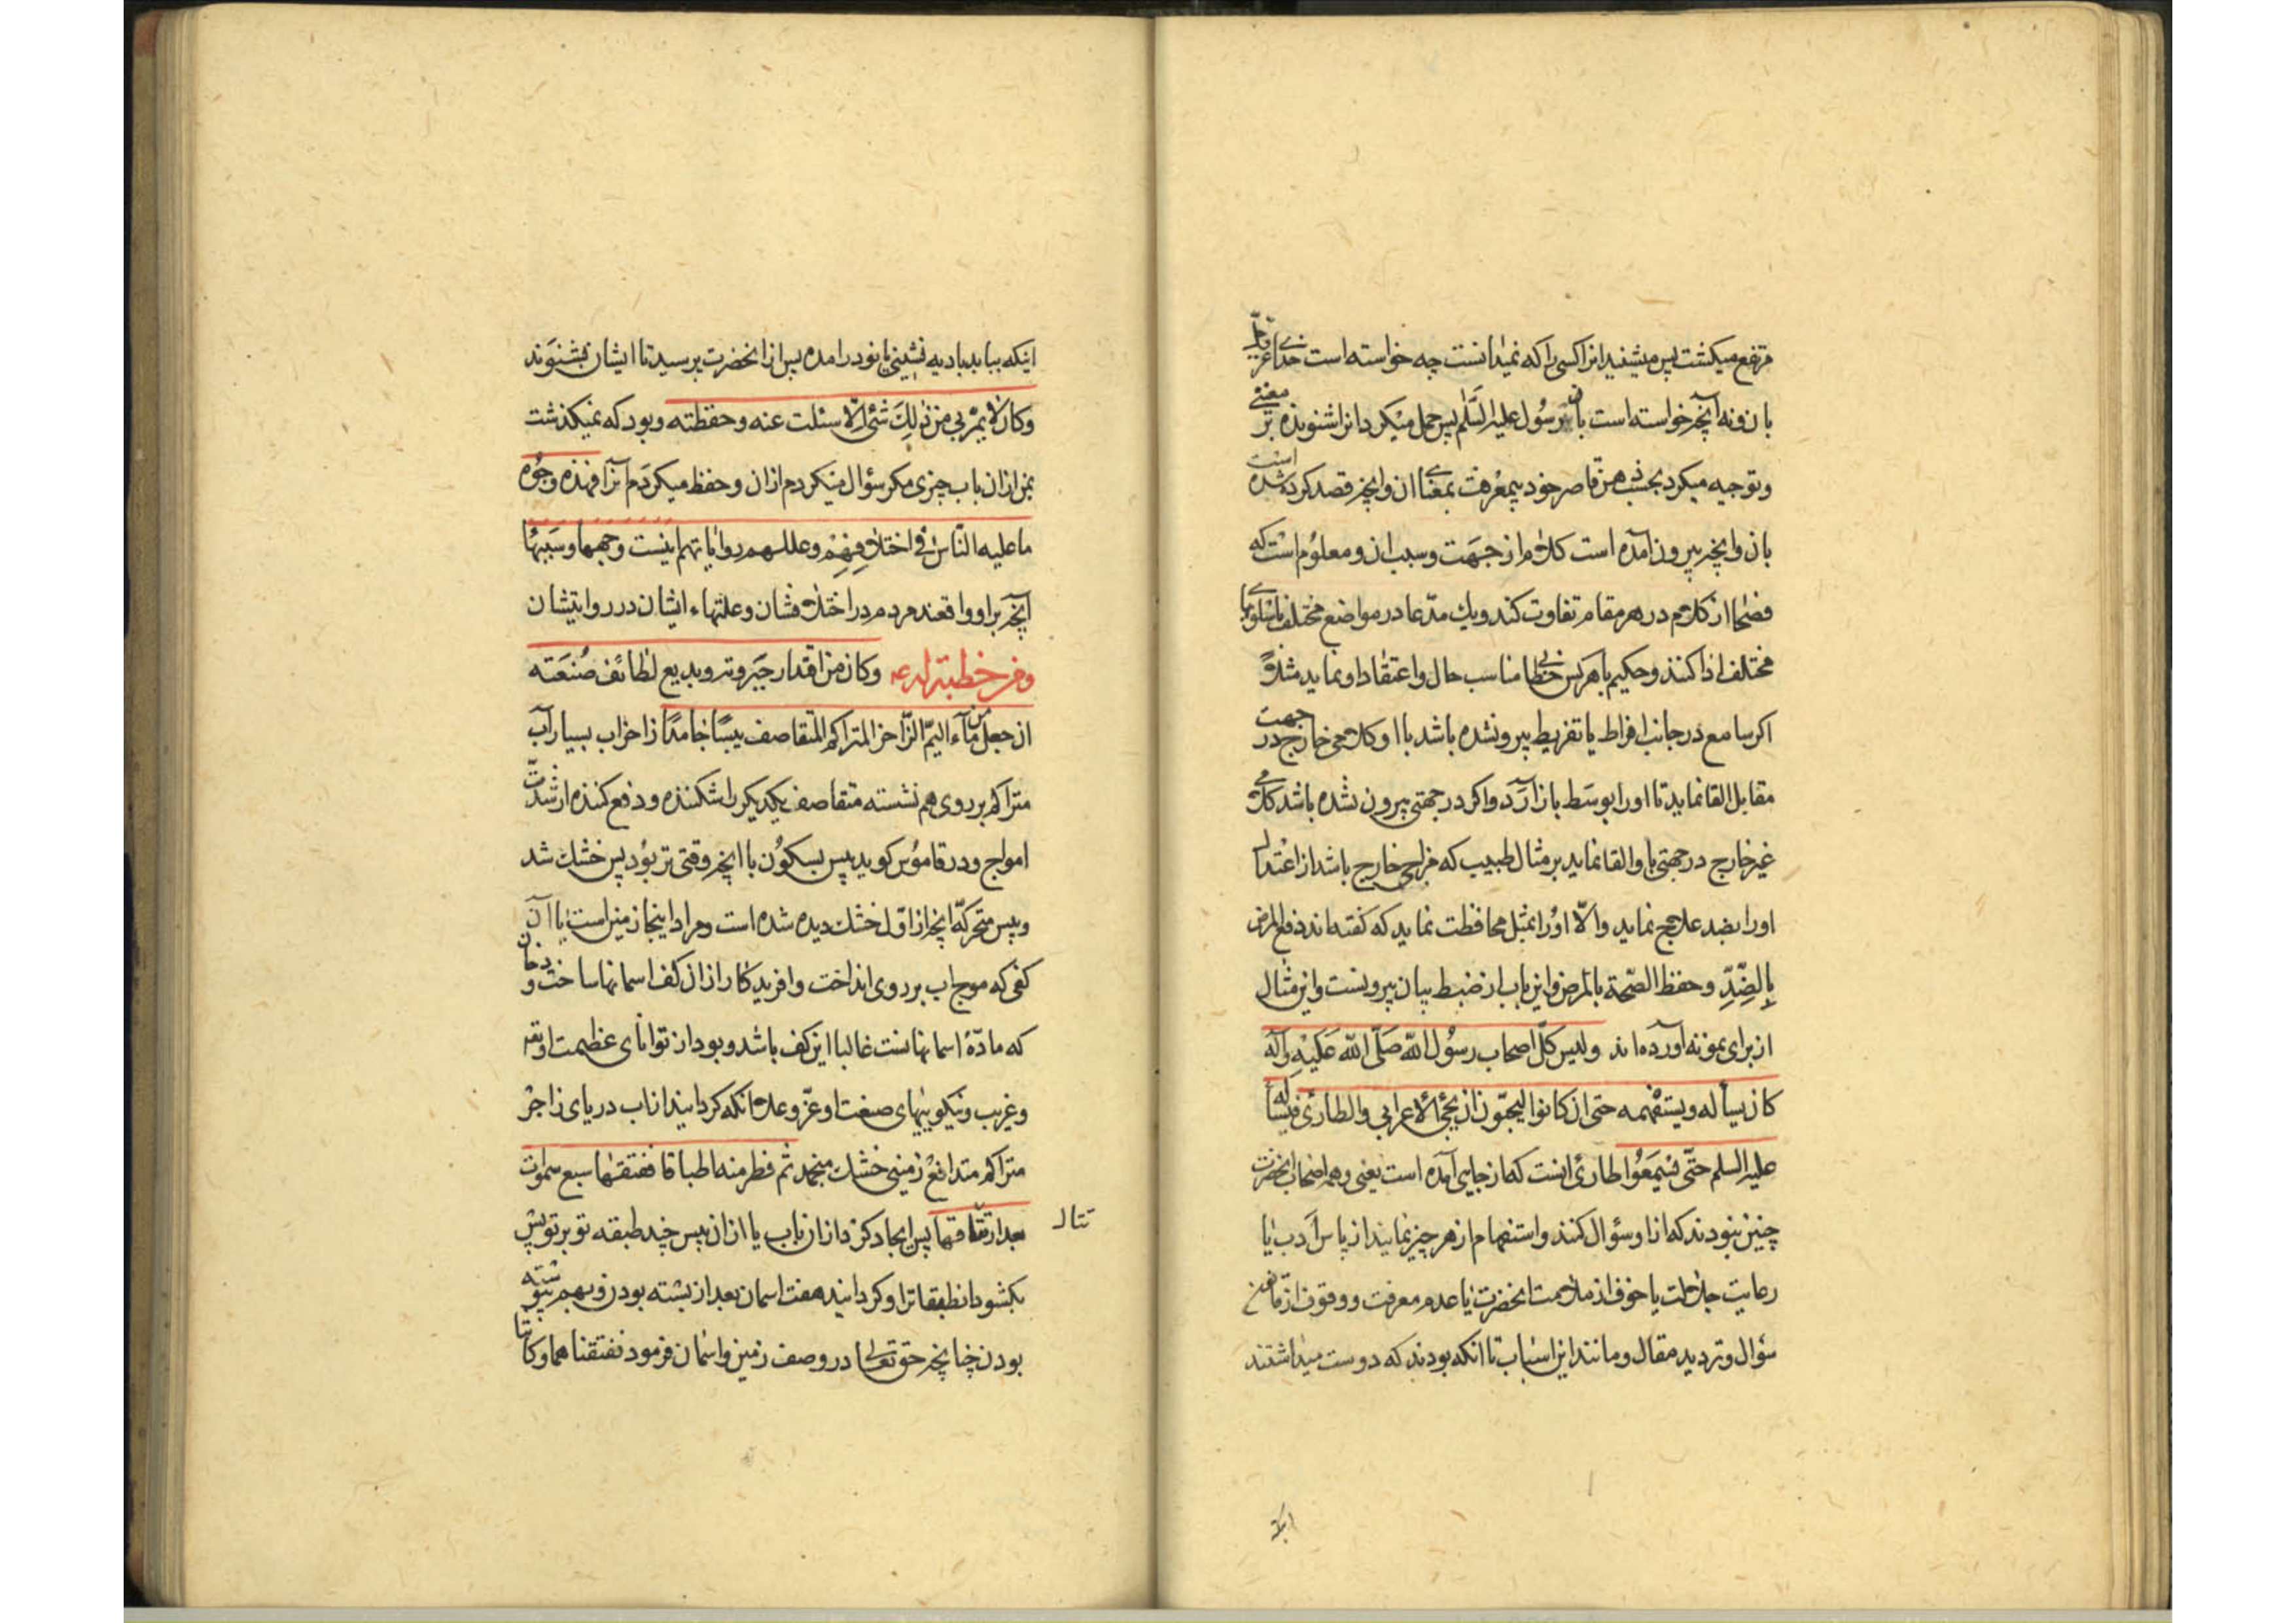 مرتفع میکشت پس میشنید انرا کسی را که نمیدانست چه خواسته است خدای عز و جل
بان ونه آنچه خواسته است بان رسول علیه السلم پس حمل میکرد انرا شنونده بر معنی
وتوجیه میکرد بحسب ذهن قاصر خود بیمعرفت بمعنای ان وانچه قصد کرده شده است
بان وانچه بیرون آمده است کلام از جهت وسبب ان ومعلوم است که
فصحا از کلام در هر مقام تفاوت کند ویك مدعا در مواضع مختلف باسلوبهای
مختلف ادا کنند وحکیم با هر کس خطابی مناسب حال واعتقاد او نماید مثلا
اکر سامع در جانب افراط یا تفریط بیرون شده باشد با او کلامی خارج در جهت
مقابل القا نماید تا اورا بوسط باز آرد واکر در جهتی بیرون نشده باشد کلامی
غیر خارج در جهتی باو القا نماید بر مثال طبیب که مزاجی خارج باشد از اعتدال
اورا بضد علاج نماید والا اورا بمثل محافظت نماید که کفته اند دفع المرض
بالضد وحفظ الصحة بالمرض واین باب از ضبط بیان بیرونست واین مثال
از برای نمونه آورده اند ولیس کل اصحاب رسول الله صلی الله علیه وآله
کان یسأله ویستفهمه حتی ان کانوا لیحبون ان یجئ الاعرابی والطارئ فیسأله
علیه السلم حتی یسمعوا طارئ انست که از جایی آمده است یعنی وهمه اصحاب انحضرت
چنین نبودند که از او سؤال کنند واستفهام از هر چیز نمایند از پاس ادب یا
رعایت جلالت یا خوف از ملامت انحضرت یا عدم معرفت ووقوف از مانع
سؤال وتردید مقال ومانند این اسباب تا انکه بودند که دوست میداشتند
اینکه بیاید بادیه نشینی یا نو درامده پس از انحضرت پرسید تا ایشان بشنوند
وکان لا یمر بی من ذلك شئ الا سئلت عنه وحفظته وبود که نمیکذشت
بمن از ان باب چیزی مکر سؤال میکردم از ان وحفظ میکردم آنرا فهذه وجوه
ما علیه الناس فی اختلافهم وعللهم روایاتهم اینست وجهها وسببها
آنچه بر او واقعند مردم در اختلافشان وعلتهاء ایشان در روایتشان
ومن خطبة له ع وکان من اقتدار جبروته وبدیع لطائف صنعته
ان جعل من ماء الیم الزاخر المتراکم المتقاصف یبسا جامدا زاخر اب بسیار آب
متراکم بر روی هم نشسته متقاصف یکدیکر را شکننده ودفع کننده از شدت
امواج ودر قاموس کوید یبس بسکون با انچه وقتی تر بود پس خشك شد
ویبس متحرکه انچه از اول خشك دیده شده است ومراد اینجا زمین است یا آن
کفی که موج اب بر روی انداخت وافریدکار از ان کف اسمانها ساخت و دخان
که مادّهٔ اسمانهاست غالبا این کف باشد وبود از توانای عظمت او تعـ
وغریب ونیکوییهای صنعت او عزّ وعلا انکه کردانید از اب دریای زاخر
متراکم متدافع زمینی خشك منجمد ثم فطر منه اطباقا ففتقها سبع سموات
بعد ارتتاقها پس ایجاد کرد از ان اب یا از ان یبس چند طبقه تو بر توی پس
بکشود ان طبقات را وکردانید هفت اسمان بعد از بسته بودن وبهم پیوسته
بودن چنانچه حق تعالی در وصف زمین واسمان فرمود ففتقناهما وکانتا